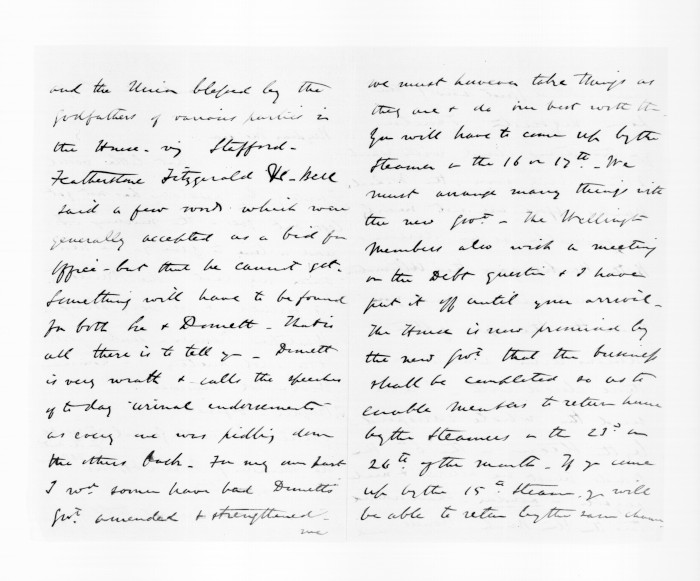 and the Union blessed by the
godfathers of various parties in
the House - viz Stafford -
Featherstone Fitzgerald &c - Bell
said a few words which were
generally accepted as a bid for
office - but that he cannot get.
Something will have to be found
for both he & Domett - That is
all there is to tell yo - Domett
is very wrath & calls the speeches
of to day urinal endorsements
as every one was pidling down
the others back - For my own part
I wd. sooner have had Dometts
Govt. amended & strengthened -
we
we must however take things as
they are & do our best with the
You will have to come up by the
Steamer on the 16 or 17th - We
must arrange many things with
the new Govt - The Wellington
Members also wish a meeting
on the Debt question & I have
put it off until your arrival -
The House is now promised by
the new Govt. that the business
shall be completed so as to
enable members to return home
by the Steamers on the 23d or
26th of the month - If yo come
up by the 15th Steamer yo will
be able to return by the same